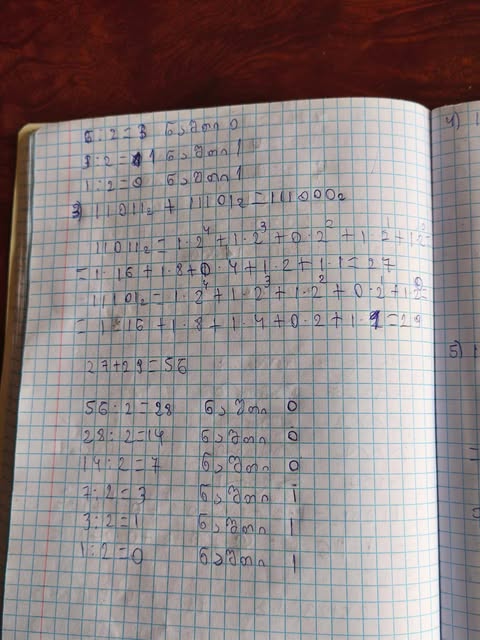 6:2=3 ნაშთი 0
3:2=1 ნაშთი 1
1:2=0 ნაშთი 1
3) 11011₂ + 11101₂ = 111000₂
11011₂ = 1·2⁴ + 1·2³ + 0·2² + 1·2¹ + 1·2⁰
= 1·16 + 1·8 + 0·4 + 1·2 + 1·1 = 27
11101₂ = 1·2⁴ + 1·2³ + 1·2² + 0·2 + 1·2⁰ =
= 1·16 + 1·8 + 1·4 + 0·2 + 1·1 = 29
27+29=56
56:2=28 ნაშთი 0
28:2=14 ნაშთი 0
14:2=7 ნაშთი 0
7:2=3 ნაშთი 1
3:2=1 ნაშთი 1
1:2=0 ნაშთი 1
4) 1
5) 1